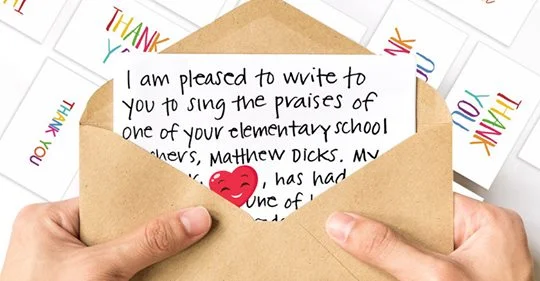 THANK
YOU
THANK YOU
THANK
YOU
I am pleased to write to
you to sing the praises of
one of your elementary school
chers, Matthew Dicks. My
, has had
one of